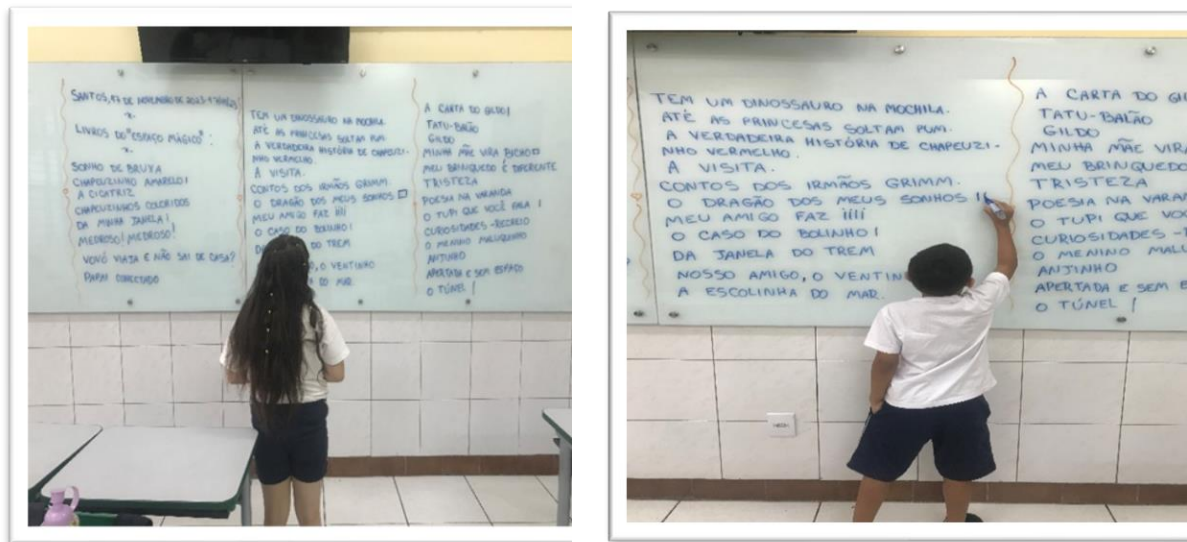 SANTOS, 17 DE NOVEMBRO DE 2023
LIVROS DO "ESPAÇO MÁGICO":
SONHO DE BRUXA
CHAPEUZINHO AMARELO I
A CICATRIZ
CHAPEUZINHOS COLORIDOS
DA MINHA JANELA I
MEDROSO! MEDROSO!
VOVÓ VIAJA E NÃO SAI DE CASA?
PAPAI
TEM UM DINOSSAURO NA MOCHILA.
ATÉ AS PRINCESAS SOLTAM PUM.
A VERDADEIRA HISTÓRIA DE CHAPEUZI-
NHO VERMELHO.
A VISITA.
CONTOS DOS IRMÃOS GRIMM.
O DRAGÃO DOS MEUS SONHOS
MEU AMIGO FAZ IIIII
O CASO DO BOLINHO I
DA DO TREM
, O VENTINHO
DO MAR.
A CARTA DO GILDO I
TATU-BALÃO
GILDO
MINHA MÃE VIRA BICHO
MEU BRINQUEDO É DIFERENTE
TRISTEZA
POESIA NA VARANDA
O TUPI QUE VOCÊ FALA I
CURIOSIDADES - RECREIO
O MENINO MALUQUINHO
ANJINHO
APERTADA E SEM ESPAÇO
O TÚNEL I
TEM UM DINOSSAURO NA MOCHILA.
ATÉ AS PRINCESAS SOLTAM PUM.
A VERDADEIRA HISTÓRIA DE CHAPEUZI-
NHO VERMELHO.
A VISITA.
CONTOS DOS IRMÃOS GRIMM.
O DRAGÃO DOS MEUS SONHOS II
MEU AMIGO FAZ IIIII
O CASO DO BOLINHO I
DA JANELA DO TREM
NOSSO AMIGO, O VENTIN
A ESCOLINHA DO MAR.
A CARTA DO GI
TATU-BALÃO
GILDO
MINHA MÃE VIRA
MEU BRINQUEDO
TRISTEZA
POESIA NA VARAN
O TUPI QUE VOC
CURIOSIDADES -
O MENINO MALU
ANJINHO
APERTADA E SEM E
O TÚNEL I